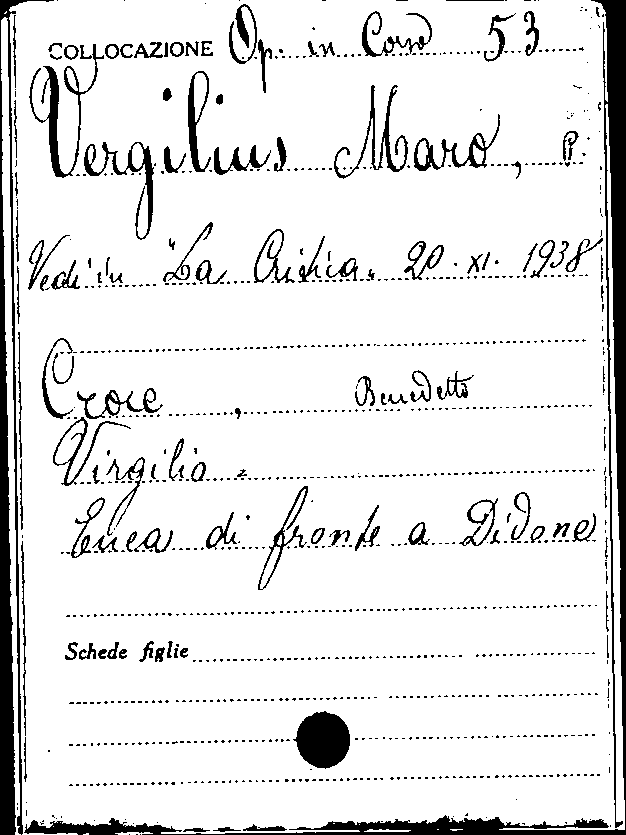 COLLOCAZIONE Op. in Corso 53
Vergilius Maro, P.
Vedi in "La Critica" 20.XI.1938
Croce, Benedetto
Virgilio =
Enea di fronte a Didone
Schede figlie